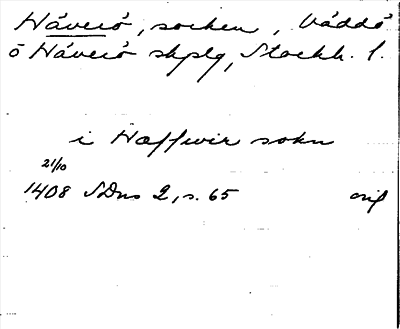 Häverö, socken, Väddö
o Häverö skplg, Stockh. l.
i Haffwir sokn
21/10
1408 SDns 2, s. 65 orig